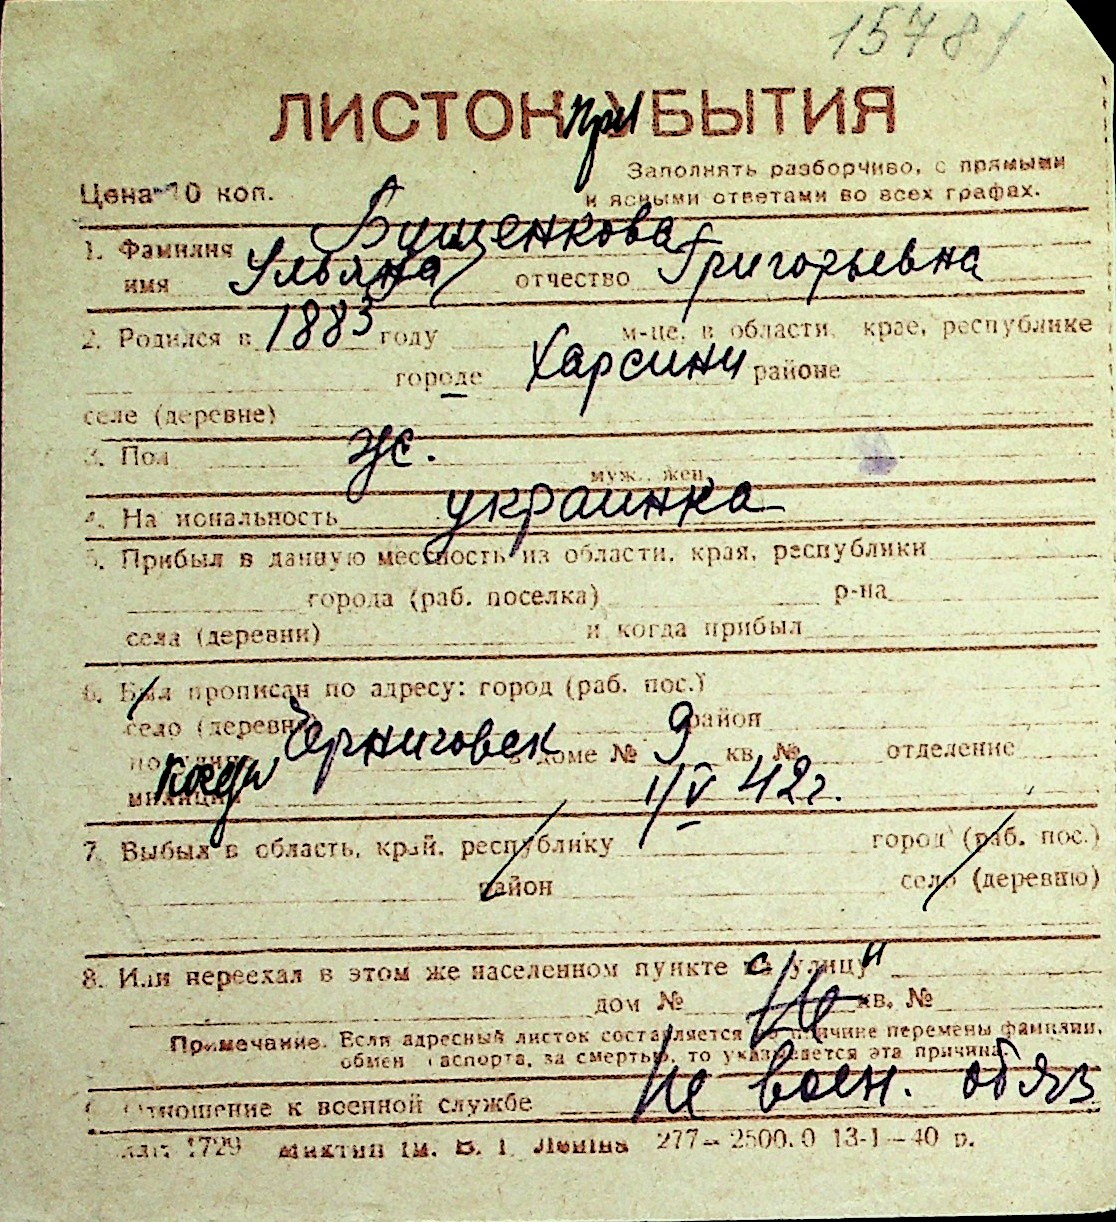 15781
ЛИСТОК при УБЫТИЯ
Заполнять разборчиво, с прямыми
Цена 10 коп.
и ясными ответами во всех графах.
1. Фамилия Бушенкова
имя Ульяна отчество Григорьевна
2. Родился в 1883 году м-це, в области, крае, республике
городе Харсини районе
селе (деревне)
3. Пол ж.
муж., жен.
4. На иональность украинка
5. Прибыл в данную местность из области, края, республики
города (раб. поселка) р-на
села (деревни) и когда прибыл
6. Был прописан по адресу: город (раб. пос.)
село (деревня) район
Черниговск в доме № 9 кв. № отделение
милиции 1/V 42 г.
7. Выбыл в область, край, республику город (раб. пос.)
район село (деревню)
8. Или переехал в этом же населенном пункте с улицы
дом № Не кв. №
Примечание. Если адресный листок составляется по причине перемены фамилии,
обмен паспорта, за смертью, то указывается эта причина.
Отношение к военной службе Не воен. обяз
1729 277—2500.0 13-1—40 р.